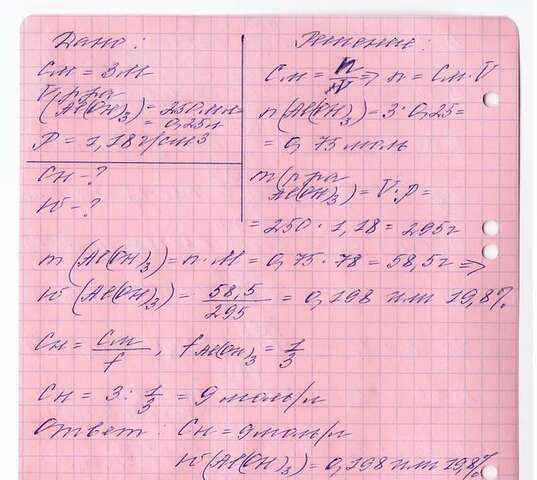 Дано:
См = 3М
V р-ра
(Al(OH)₃) = 250 мл =
= 0,25 л
ρ = 1,18 г/см³
Сн - ?
W - ?
Решение:
См = n/V ⇒ n = См · V
n(Al(OH)₃) = 3 · 0,25 =
= 0,75 моль
m(р-ра
Al(OH)₃) = V · ρ =
= 250 · 1,18 = 295 г
m(Al(OH)₃) = n · M = 0,75 · 78 = 58,5 г ⇒
W(Al(OH)₃) = 58,5/295 = 0,198 или 19,8%
Сн = См/f, f Al(OH)₃ = 1/3
Сн = 3 : 1/3 = 9 моль/л
Ответ: Сн = 9 моль/л
W(Al(OH)₃) = 0,198 или 19,8%